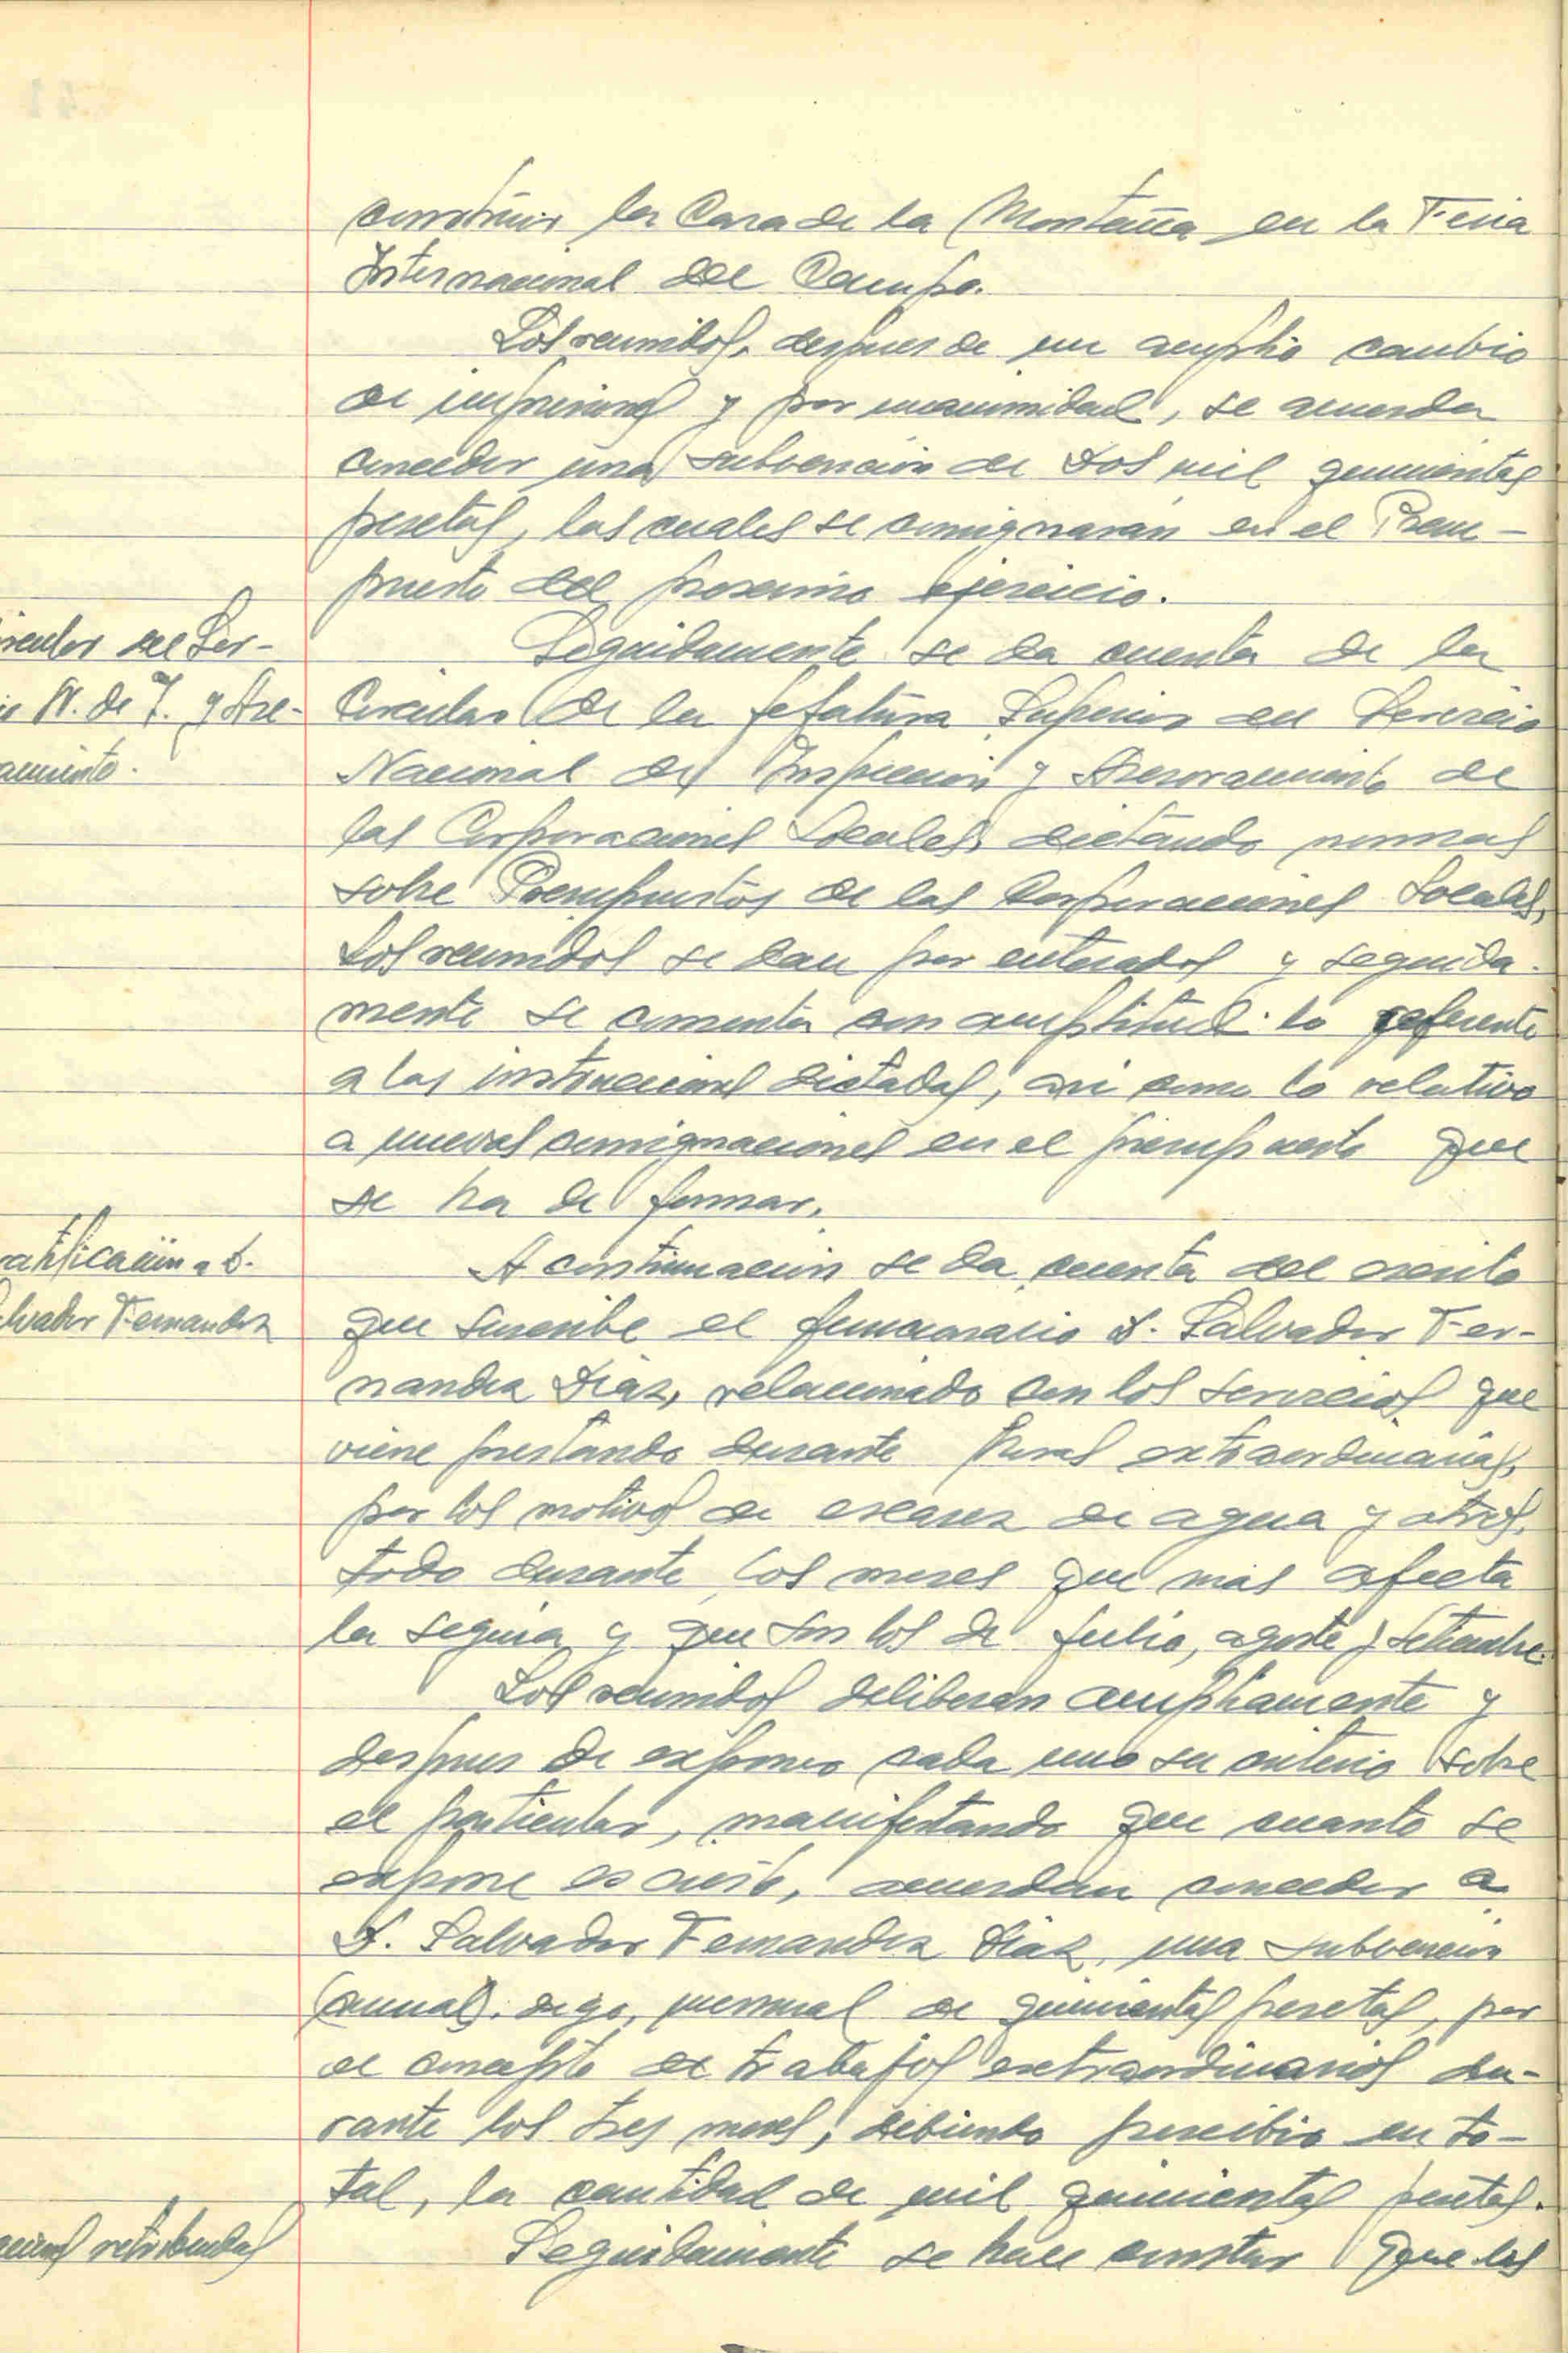 construir la Casa de la Montaña en la Feria
Internacional del Campo.
Los reunidos, despues de un amplio cambio
de impresiones y por unanimidad, se acuerda
conceder una subvención de Dos mil quinientas
pesetas, las cuales se consignarán en el Presu-
puesto del proximo ejercicio.
rcular del Ser-
io N. de I. y Ase-
amiento.
Seguidamente se da cuenta de la
Circular de la Jefatura Superior del Servicio
Nacional de Inspección y Asesoramiento de
las Corporaciones Locales, dictando normas
sobre Presupuestos de las Corporaciones Locales,
Los reunidos se dan por enterados y seguida-
mente se comenta con amplitud lo referente
a las instrucciones dictadas, asi como lo relativo
a nuevas consignaciones en el presupuesto que
se ha de formar.
ratificación a D.
lvador Fernandez
A continuación se da cuenta del escrito
que suscribe el funcionario D. Salvador Fer-
nandez Diaz, relacionado con los servicios que
viene prestando durante horas extraordinarias,
por los motivos de escasez de agua y otros,
todo durante los meses que mas afecta
la sequia y que son los de julio, agosto y setiembre.
Los reunidos deliberan ampliamente y
despues de exponer cada uno su criterio sobre
el particular, manifestando que cuanto se
expone es cierto, acuerdan conceder a
D. Salvador Fernandez Diaz, una subvención
(anual). digo, mensual de quinientas pesetas, por
el concepto de trabajos extraordinarios du-
rante los tres meses, debiendo percibir en to-
tal, la cantidad de mil quinientas pesetas.
retribuidas
Seguidamente se hace constar que las